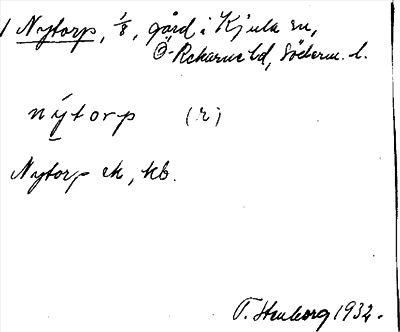 1 Nytorp, 1/8, gård i Kjula sn,
Ö-Rekarne hd, Söderm. l.
nýtorp (r)
Nytorp ek, kb.
T. Stenborg 1932.